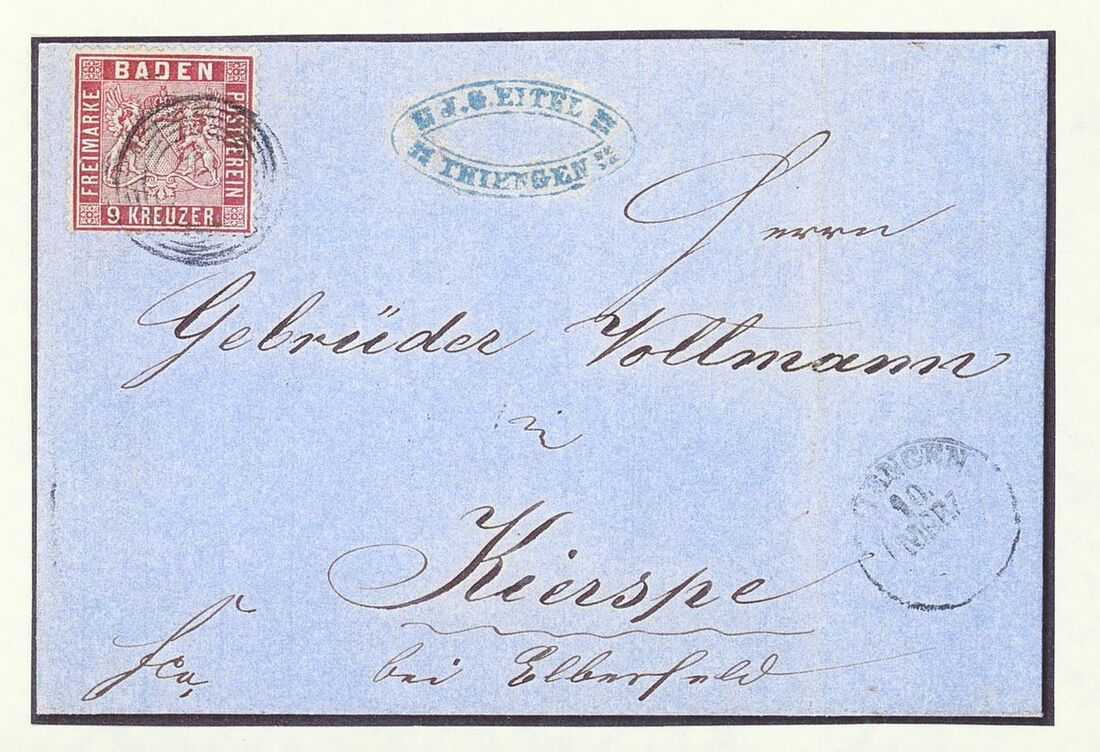 BADEN
FREIMARKE
POSTVEREIN
9 KREUZER.
J. G. EITEL
THIENGEN
Herrn
Gebrüder Vollmann
in
Kierspe
bei Elberfeld
fco,
10.
MRZ